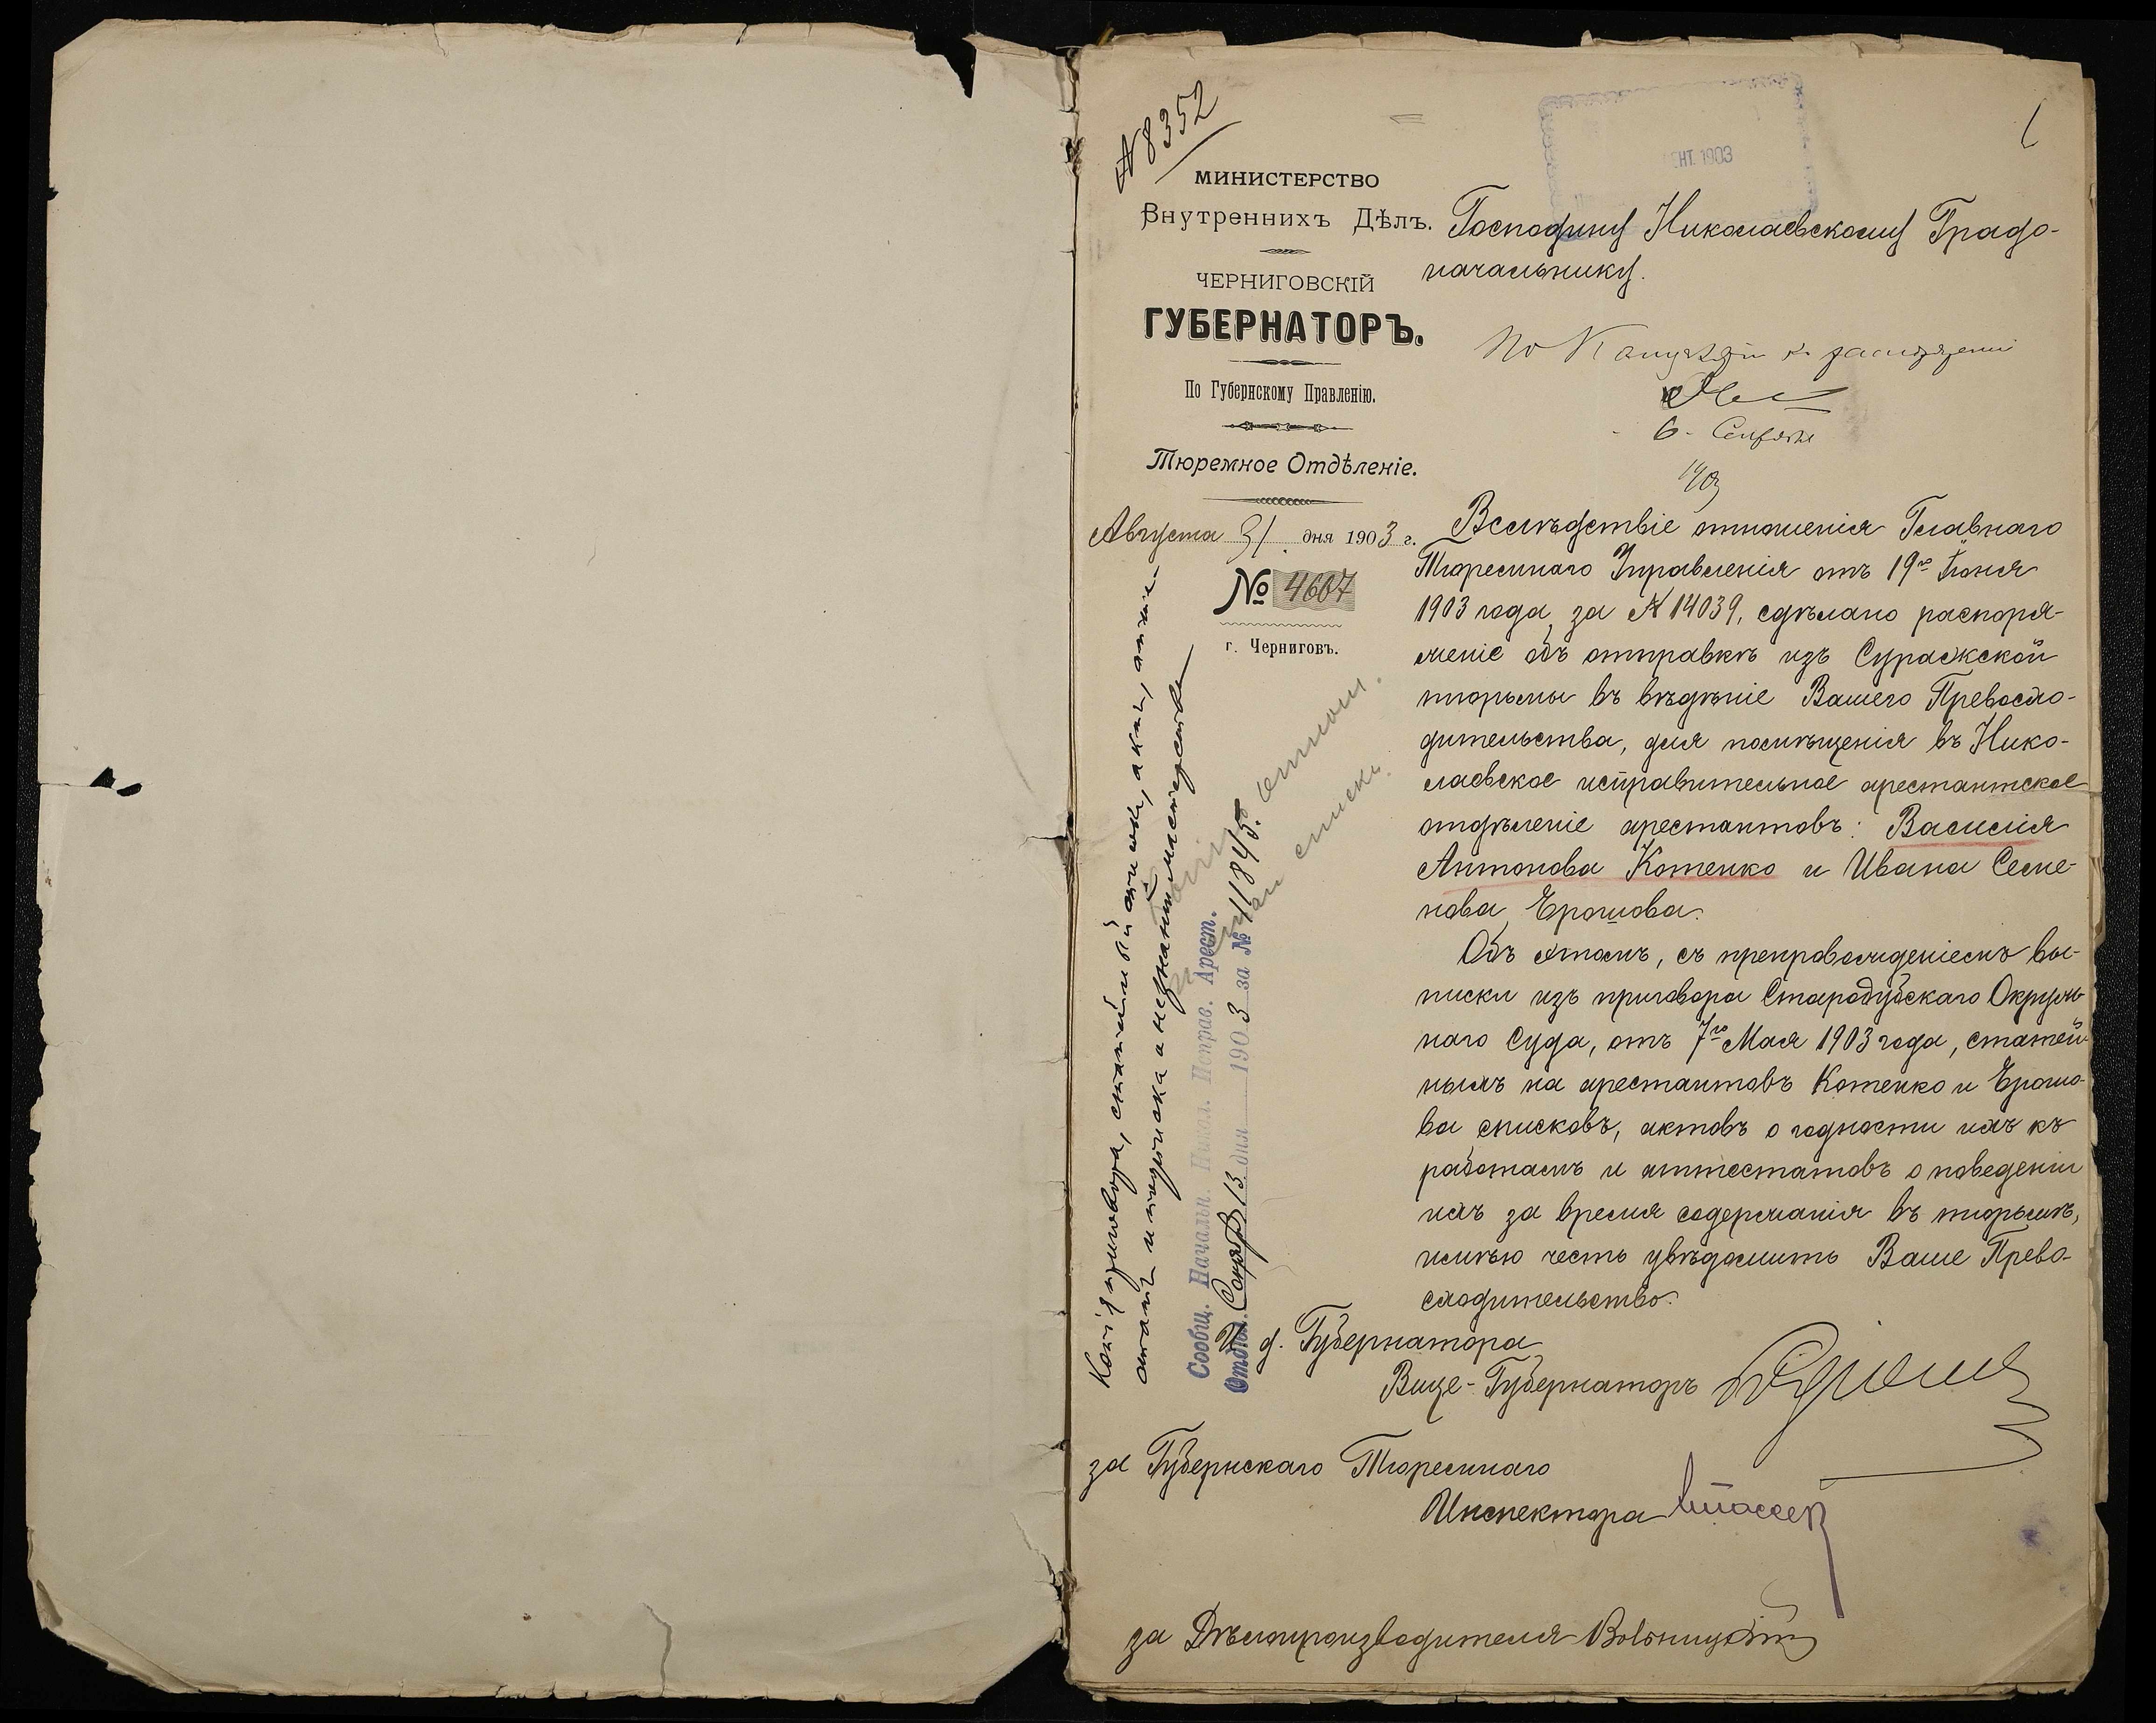 № 8352
1
МИНИСТЕРСТВО
Внутреннихъ Дѣлъ.
ЧЕРНИГОВСКІЙ
ГУБЕРНАТОРЪ.
По Губернскому Правленію.
Тюремное Отдѣленіе.
Августа 31. дня 1903 г.
№ 4607
г. Черниговъ.
ЕНТ. 1903
Господину Николаевскому Градо-
начальнику.
6
Вслѣдствіе отношенія Главнаго
Тюремнаго Управленія отъ 19го Іюня
1903 года, за № 14039, сдѣлано распоря-
женіе объ отправкѣ изъ Суражской
тюрьмы въ вѣдѣніе Вашего Превосхо-
дительства, для помѣщенія въ Нико-
лаевское исправительное арестантское
отдѣленіе арестантовъ: Василія
Антонова Котенко и Ивана Семе-
нова Ерошова.
Объ этомъ, съ препровожденіемъ вы-
писки изъ приговора Стародубскаго Окруж-
наго Суда, отъ 7го Мая 1903 года, статей-
ныхъ на арестантовъ Котенко и Ерошо-
ва списковъ, актовъ о годности ихъ къ
работамъ и аттестатовъ о поведеніи
ихъ за время содержанія въ тюрьмѣ,
имѣю честь увѣдомить Ваше Прево-
сходительство.
И. д. Губернатора
Вице-Губернаторъ
за Губернскаго Тюремнаго
Инспектора
за Дѣлопроизводителя
Копія приговора, статейный списокъ, актъ,
и подписка о незнаніи мастерства
Сообщ. Начальн. Никол. Исправ. Арест.
Отдѣл. Сентяб 13 дня 1903 за № 11845